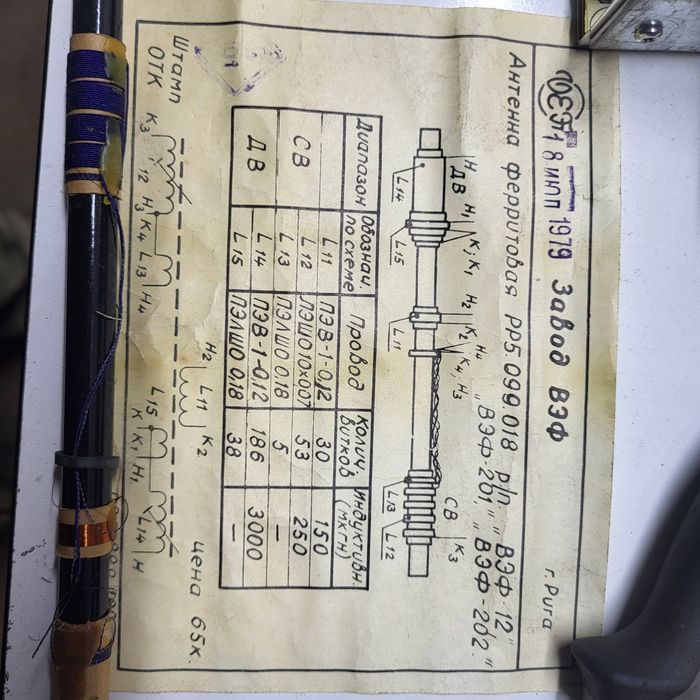 ВЭФ Завод ВЭФ г. Рига
18 ИЮЛ 1979
Антенна ферритовая РР5.099.018 р/п. "ВЭФ-12"
"ВЭФ-201", "ВЭФ-202".
Н ДВ Н₁ К; К₁ Н₂ К₂ Н₄ К₄, Н₃ СВ К₃
L14 L15 L11 L13 L12
Диапазон Обознач. по схеме Провод Колич. витков Индуктивн. (мкгн)
СВ L11 ПЭВ-1-0,12 30 150
L12 ЛЭШО 10×0,07 53 250
L13 ПЭЛШО 0,18 5 —
ДВ L14 ПЭВ-1-0,12 186 3000
L15 ПЭЛШО 0,18 38 —
Штамп
ОТК
цена 65к.
Н₂ L11 К₂
К₃ 12 Н₃ К₄ L13 Н₄ L15 К К₁ Н₁ L14 Н